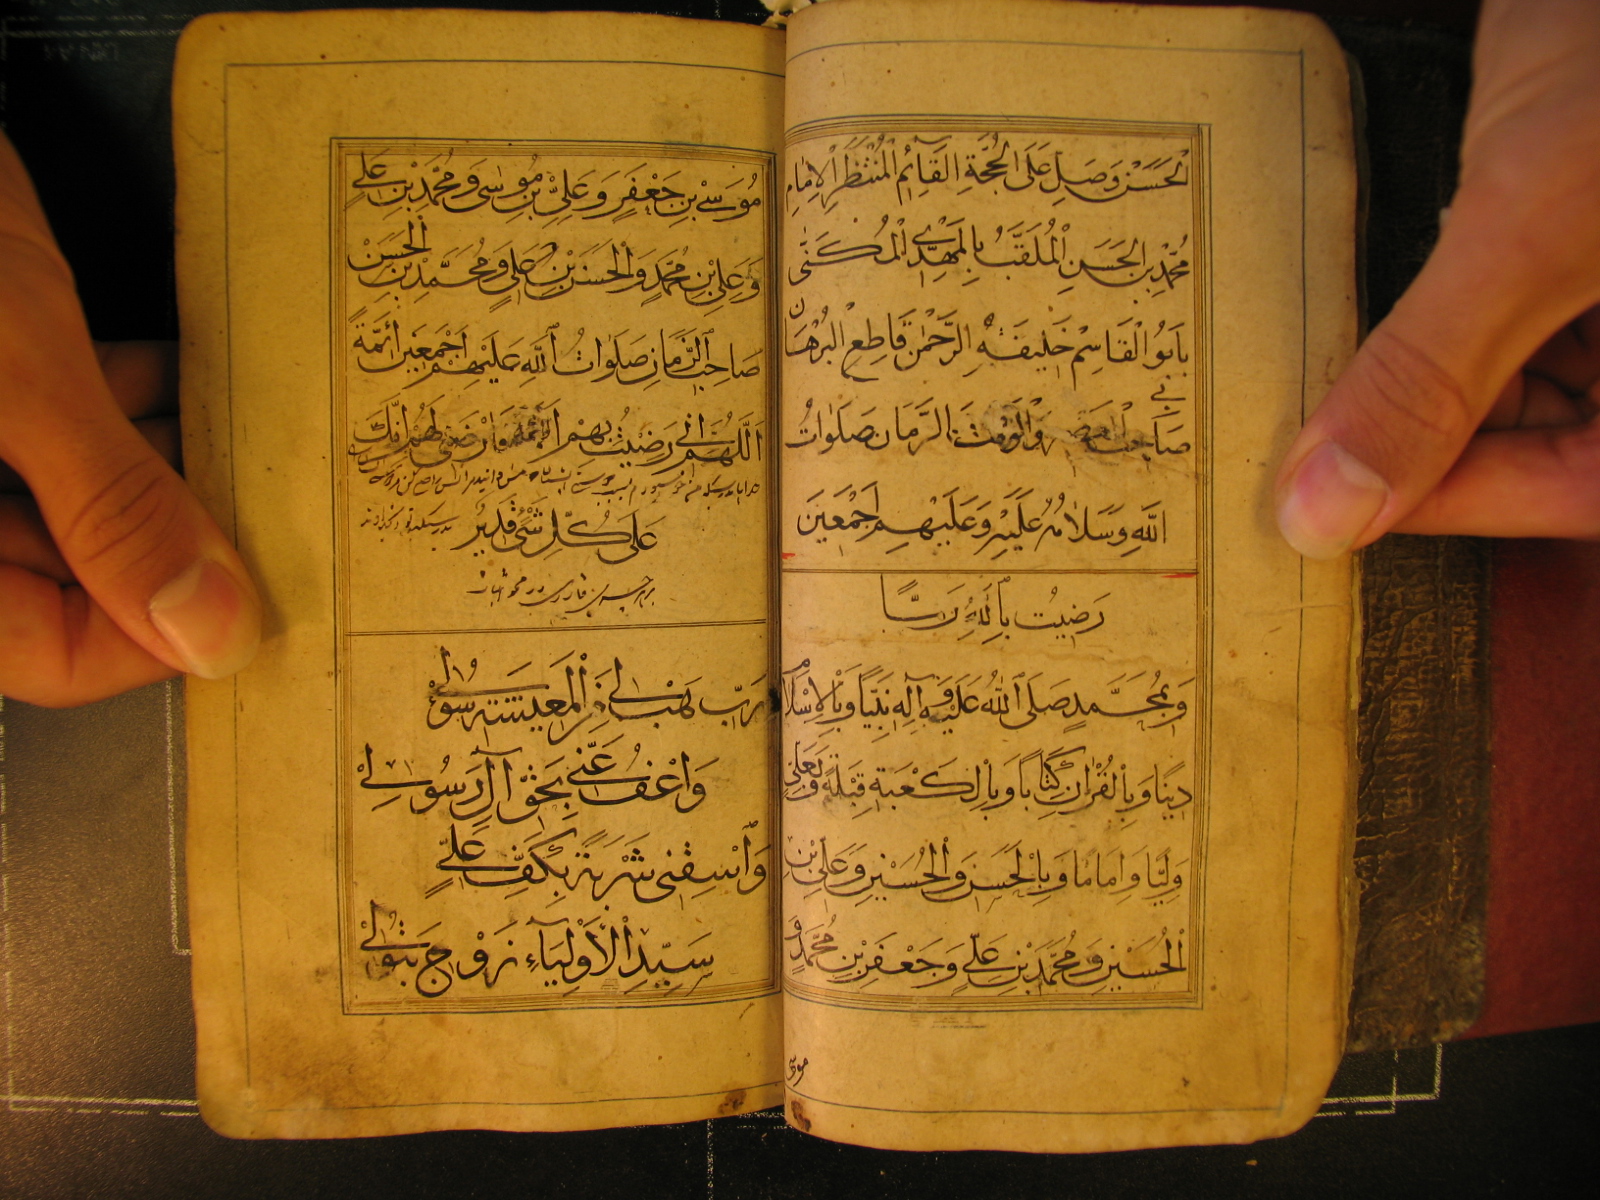 الْحَسَنْ وَصَلِ عَلَى الْحُجَّةِ الْقَآئِمُ الْمُنْتَظَرِ الْاِمٰامِ
مُحَمَّدْ بْنِ الْحَسَنِ الْمُلَقَّبُ بِالْمَهْدِىْ الْمُكَنّٰى
بِاَبُو الْقَاسِمْ خَلِيفَهُ الرَّحْمٰنْ قَاطِعِ الْبُرْهَانِ
صَاحِبْ وَالْوَقْتْ الزَّمَانِ صَلَوٰاتُ
اللّٰهِ وَسَلٰامُهُ عَلَيْهِ وَعَلَيْهِمْ اَجْمَعِينَ
رَضِيْتُ بِاللّٰهِ رَبًّا
وَبِمُحَمَّدٍ صَلَى اللّٰهُ عَلَيْهِ وَآلِهِ نَبِيًّا وَبِالْاِسْلٰامِ
دِينًا وَبِالْقُرْآنِ كِتٰابًا وَبِالْكَعْبَةِ قِبْلَةً وَبِعَلِىٍّ
وَلِيًّا وَاِمَامًا وَبِالْحَسَنِ وَالْحُسَيْنِ وَعَلِىِّ بْنِ
الْحُسَيْنِ وَمُحَمَّدَ بْنِ عَلِىٍّ وَجَعْفَرَ بْنِ مُحَمَّدٍ وَ
موسى
مُوسَى بْنِ جَعْفَرٍ وَعَلِىِّ بْنِ مُوسٰى وَمُحَمَّدِ بْنِ عَلِىٍ
وَعَلِىِّ بْنِ مُحَمَّدٍ وَالْحَسَنِ بْنِ عَلِىٍ وَمُحَمَّدِ بْنِ الْحَسَنْ
صَاحِبِ الزَّمَانِ صَلَوَاتُ اللّٰهِ عَلَيْهِمْ اَجْمَعِينَ اَئِمَّةً
اَللّٰهُمَّ اِنِّى رَضِيْتُ بِهِمْ اَئِمَّةً وَارْضَنِى لَهُمْ اِنَّكَ
عَلٰى كُلِّ شَىْءٍ قَدِيرُ
رَبِّ هَبْ لِى مِنَ الْمَعِيشَتِهِ سُولِىْ
وَاعْفُ عَنِّى بِحَقِّ آلِ رَسُولِىْ
وَاسْقِنِى شَرْبَةً بِكَفِّ عَلِىٍّ
سَيِّدِ الْاَوْلِيَآءِ زَوْجِ بَتُولِىْ